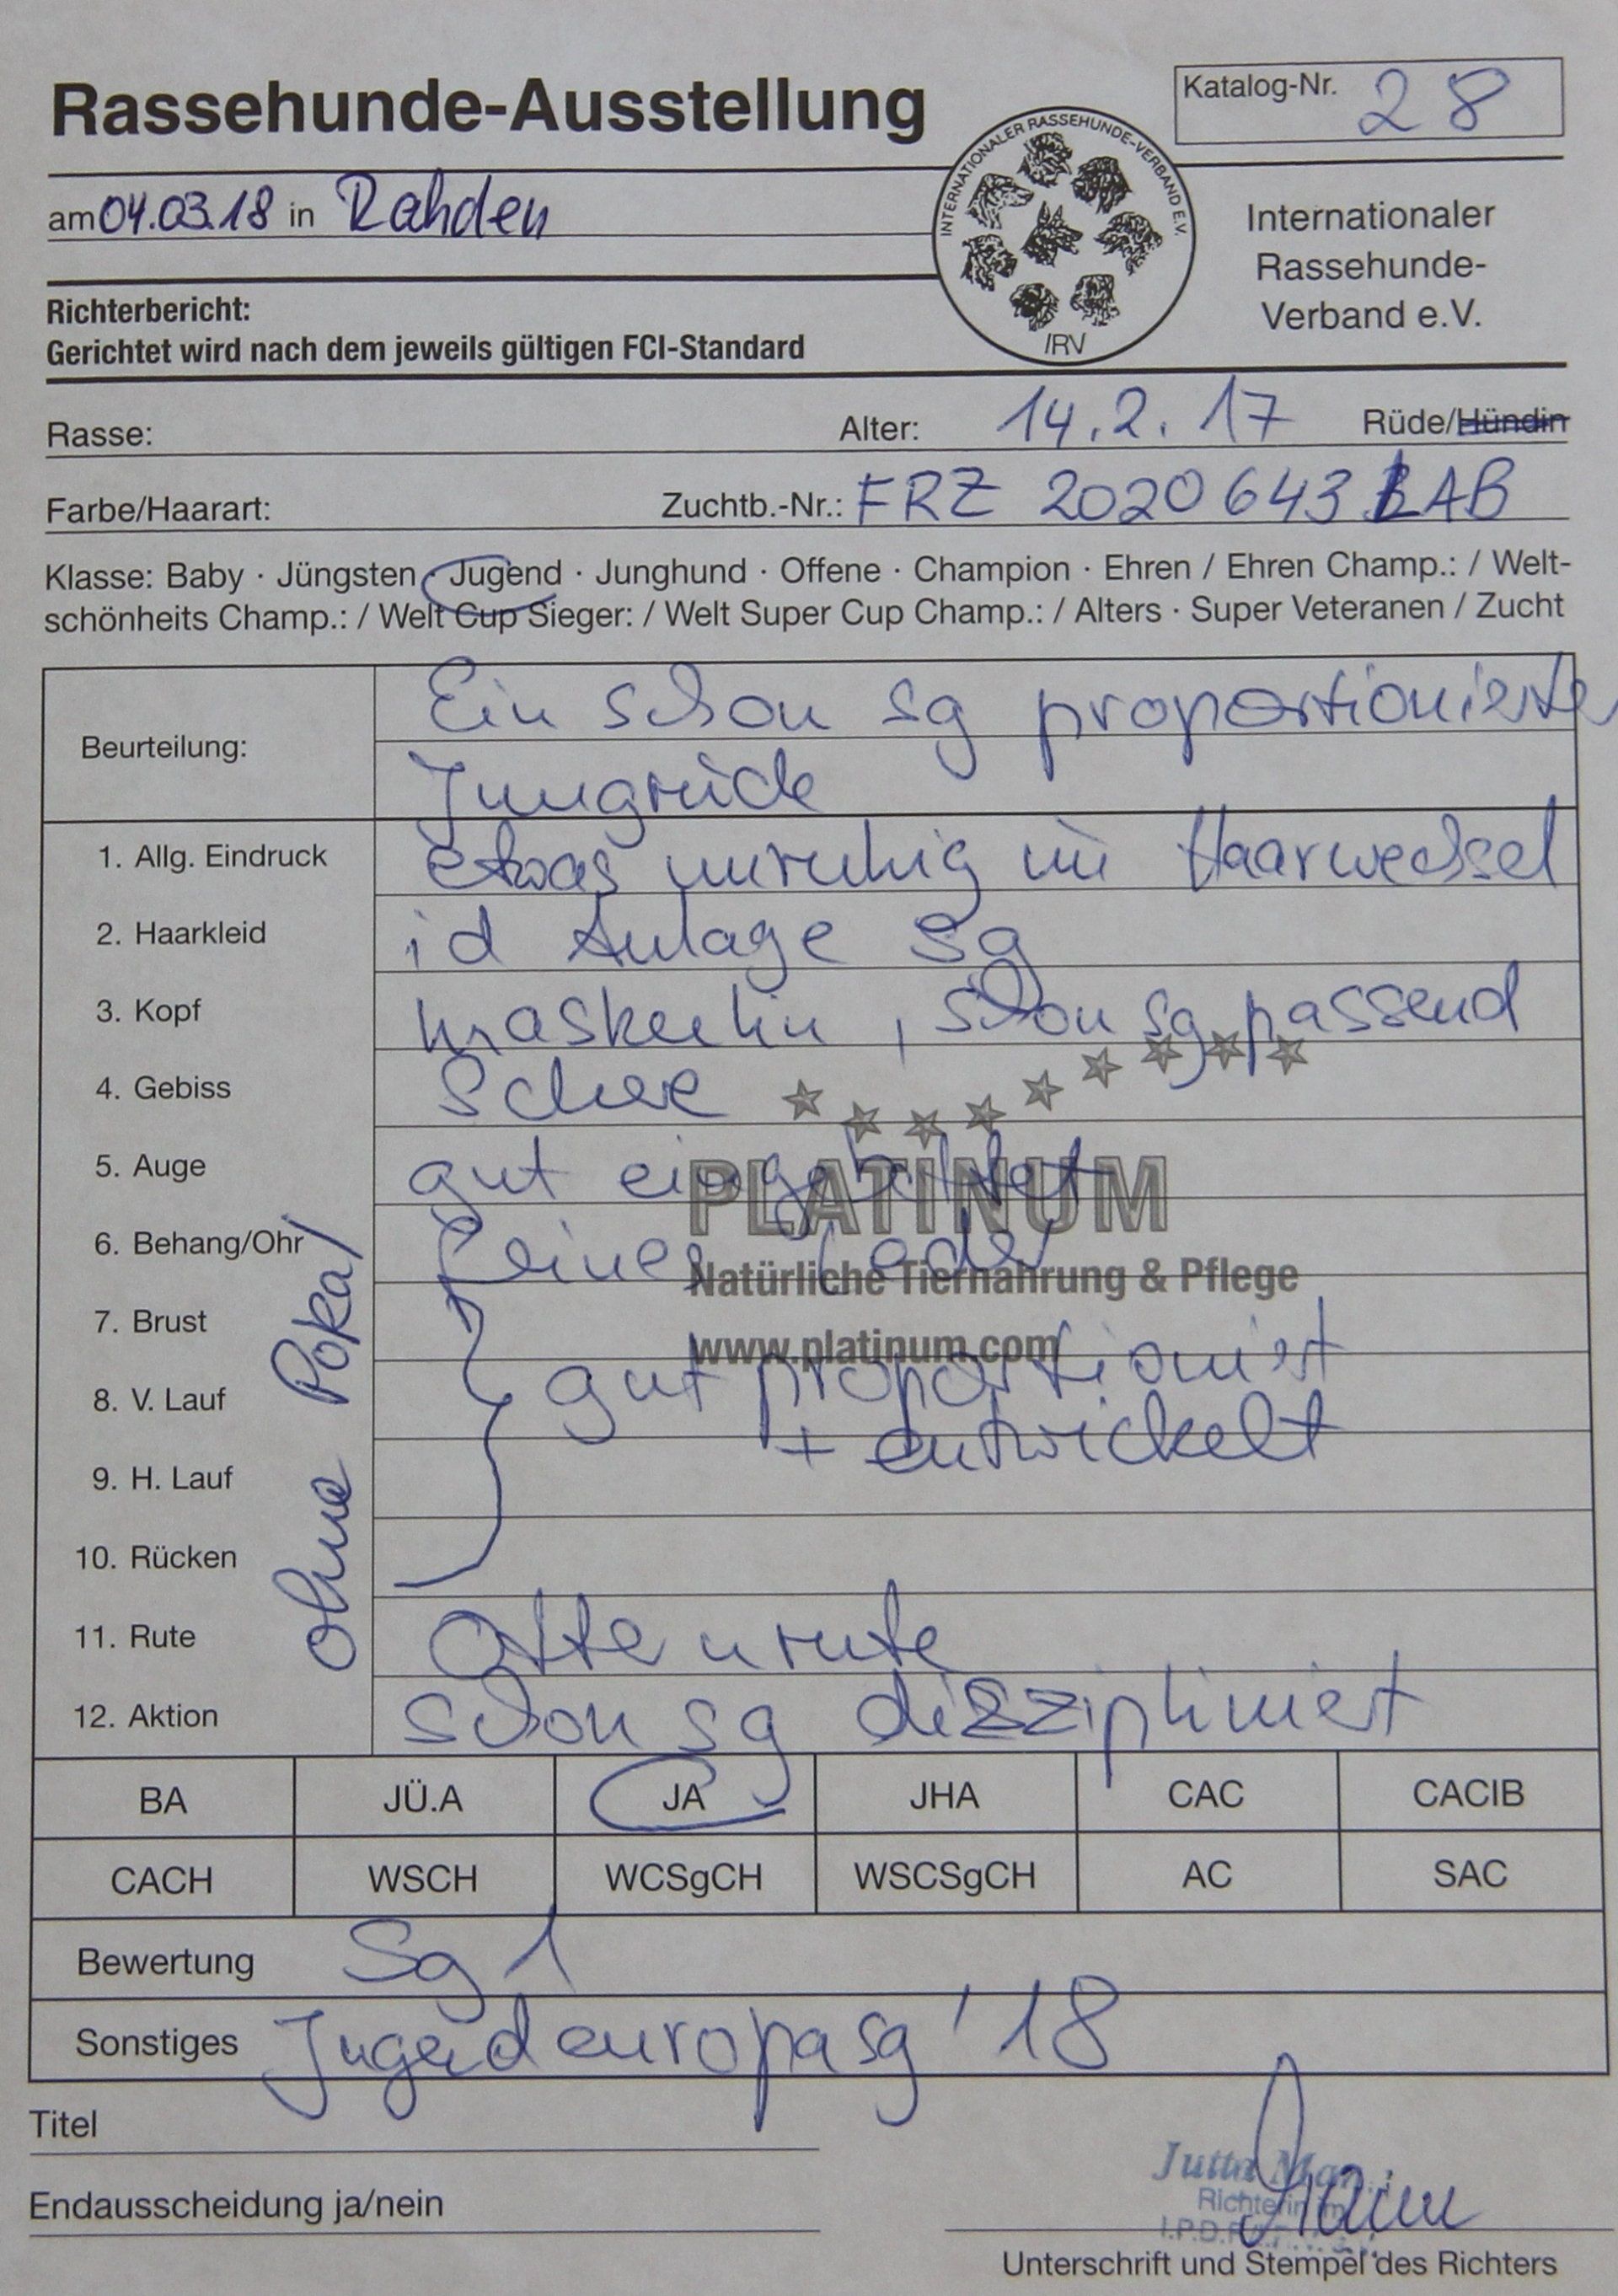 Rassehunde-Ausstellung
Katalog-Nr. 28
INTERNATIONALER RASSEHUNDE-VERBAND E.V.
IRV
am 04.03.18 in Rahden
Internationaler
Rassehunde-
Verband e.V.
Richterbericht:
Gerichtet wird nach dem jeweils gültigen FCI-Standard
Rasse: Alter: 14.2.17 Rüde/Hündin
Farbe/Haarart: Zuchtb.-Nr.: FRZ 2020643 LAB
Klasse: Baby · Jüngsten · Jugend · Junghund · Offene · Champion · Ehren / Ehren Champ.: / Welt-
schönheits Champ.: / Welt Cup Sieger: / Welt Super Cup Champ.: / Alters · Super Veteranen / Zucht
Beurteilung: Ein schon sg proportionierte
Jungrüde
1. Allg. Eindruck etwas unruhig im Haarwechsel
2. Haarkleid id Anlage sg
3. Kopf maskulin, schon sg passend
4. Gebiss Schere
5. Auge gut eingebettet
6. Behang/Ohr feines Leder
7. Brust
8. V. Lauf gut proportioniert
+ entwickelt
9. H. Lauf
10. Rücken
11. Rute Otterrute
12. Aktion schon sg diszipliniert
ohne Pokal
PLATINUM
Natürliche Tiernahrung & Pflege
www.platinum.com
BA JÜ.A JA JHA CAC CACIB
CACH WSCH WCSgCH WSCSgCH AC SAC
Bewertung Sg 1
Sonstiges Jugendeuropasg '18
Titel
Endausscheidung ja/nein
Jutta
Richterin im
Unterschrift und Stempel des Richters